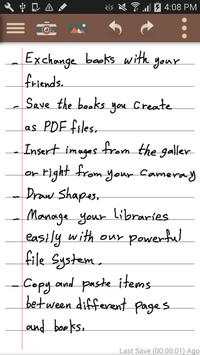 4:08 PM
- Exchange books with your
friends.
- Save the books you Create
as PDF files.
- Insert images from the galler
or right from your Cameray
- Draw Shapes.
- Manage your Libraries
easily with our powerful
file System.
- Copy and paste items
between different pages
and books.
Last Save (00:00:01) Ago